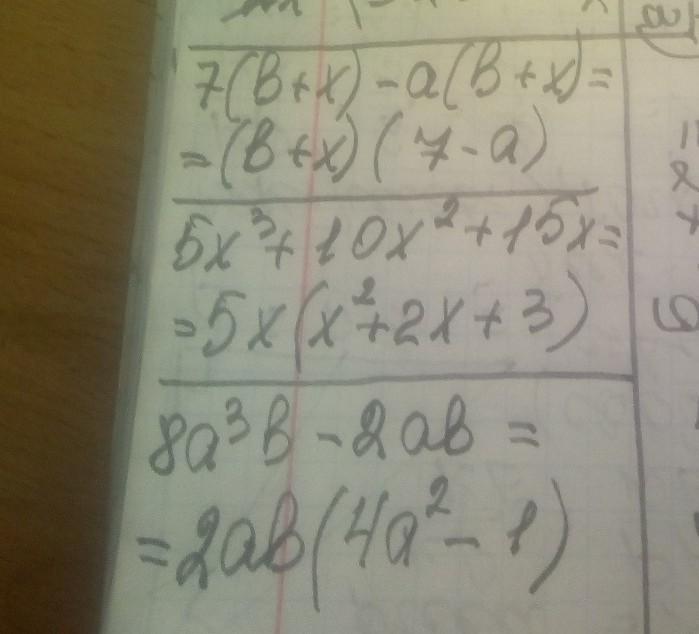 7(b+x)-a(b+x)=
=(b+x)(7-a)
5x³+10x²+15x=
=5x(x²+2x+3)
8a³b-2ab=
=2ab(4a²-1)